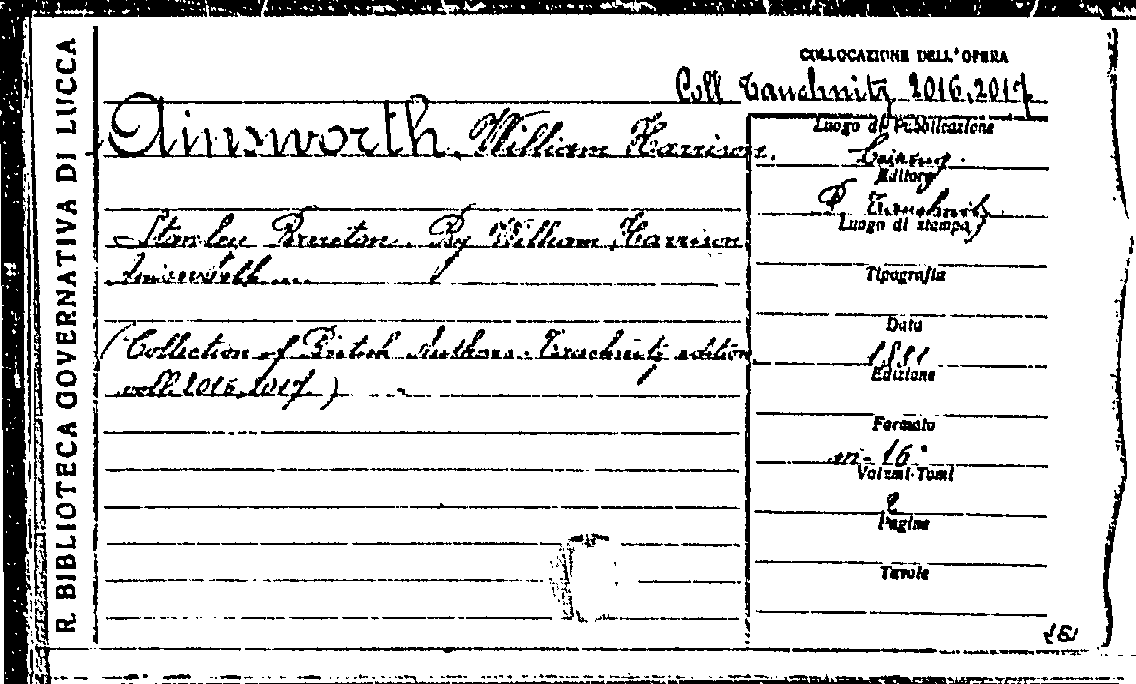 R. BIBLIOTECA GOVERNATIVA DI LUCCA
COLLOCAZIONE DELL'OPERA
Coll Tauchnitz 2016,2017
Ainsworth, William Harrison.
Stanley Brereton. By William Harrison
Ainsworth
(Collection of British Authors. Tauchnitz edition
voll. 2016, 2017)
Luogo di Pubblicazione
Leipzig
Editore
B Tauchnitz
Luogo di stampa
Tipografia
Data
1881
Edizione
Formato
in-16°
Volumi-Tomi
2
Pagine
Tavole